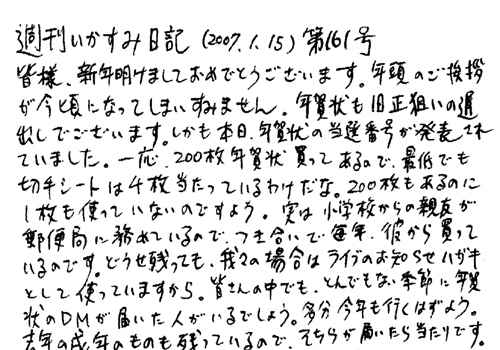 週刊いかすみ日記 (2007.1.15) 第161号
皆様、新年明けましておめでとうございます。年頭のご挨拶
が今頃になってしまいすみません。年賀状も旧正狙いの遅
出しでございます。しかも本日、年賀状の当選番号が発表され
ていました。一応、200枚年賀状買ってあるので、最低でも
切手シートは4枚当たっているわけだな。200枚もあるのに
1枚も使っていないのですよう。実は小学校からの親友が
郵便局に務めているので、つき合いで毎年、彼から買って
いるのです。どうせ残っても、我々の場合はライブのお知らせハガキ
として使っていますから。皆さんの中でも、とんでもない季節に年賀
状のDMが届いた人がいるでしょう。多分今年も行くはずよう。
去年の戌年のものも残っているので、そちらが届いたら当たりです。